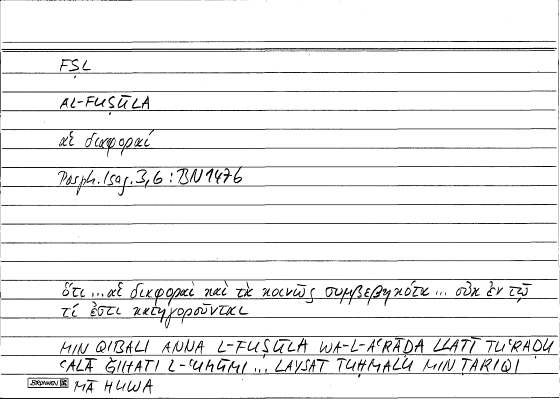 FṢL
AL-FUṢŪLA
αἱ διαφοραί
Porph. Isag. 3,6 : BN 147b
ὅτι ... αἱ διαφοραὶ καὶ τὰ κοινῶς συμβεβηκότα ... οὐκ ἐν τῷ
τί ἐστι κατηγοροῦνται
MIN QIBALI ANNA L-FUṢŪLA WA-L-AʿRĀḌA LLATĪ TUʿRAḌU
ʿALĀ ǦIHATI L-ʿUMŪMI ... LAYSAT TUḤMALU MIN ṬARĪQI
BRUNNEN MĀ HUWA